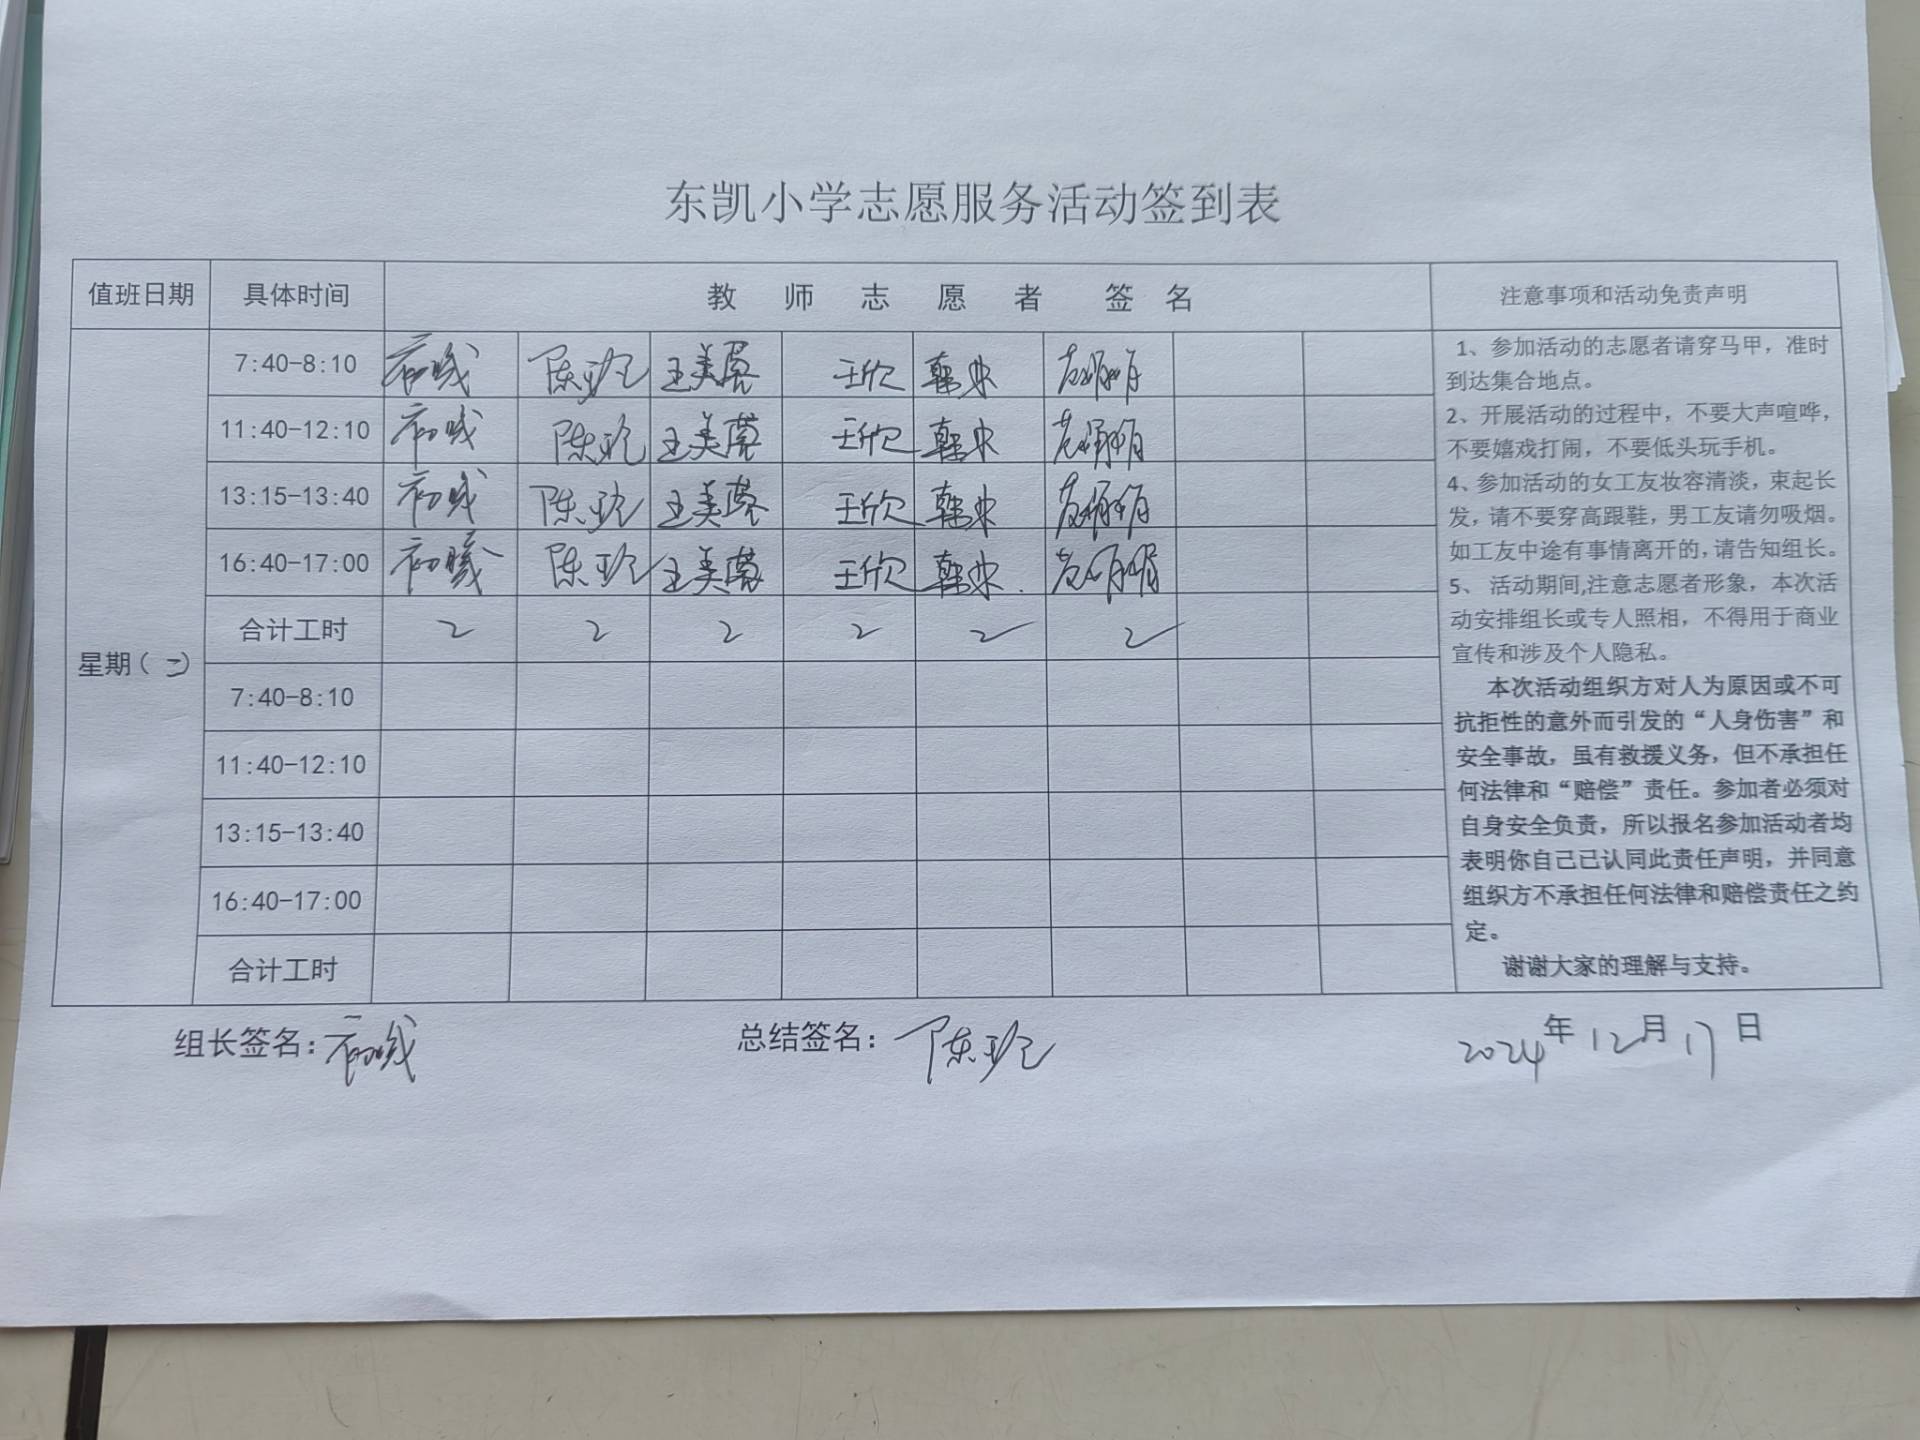 东凯小学志愿服务活动签到表
值班日期 具体时间 教师志愿者签名 注意事项和活动免责声明
7:40-8:10 陈玲 王美蓉 王欣 韩冰
11:40-12:10 陈玲 王美蓉 王欣 韩冰
13:15-13:40 陈玲 王美蓉 王欣 韩冰
16:40-17:00 陈玲 王美蓉 王欣 韩冰
合计工时 2 2 2 2 2 2
星期(二)
7:40-8:10
11:40-12:10
13:15-13:40
16:40-17:00
合计工时
1、参加活动的志愿者请穿马甲，准时
到达集合地点。
2、开展活动的过程中，不要大声喧哗，
不要嬉戏打闹，不要低头玩手机。
4、参加活动的女工友妆容清淡，束起长
发，请不要穿高跟鞋，男工友请勿吸烟。
如工友中途有事情离开的，请告知组长。
5、 活动期间,注意志愿者形象，本次活
动安排组长或专人照相，不得用于商业
宣传和涉及个人隐私。
本次活动组织方对人为原因或不可
抗拒性的意外而引发的“人身伤害”和
安全事故，虽有救援义务，但不承担任
何法律和“赔偿”责任。参加者必须对
自身安全负责，所以报名参加活动者均
表明你自己已认同此责任声明，并同意
组织方不承担任何法律和赔偿责任之约
定。
谢谢大家的理解与支持。
组长签名： 总结签名：陈玲 2024年12月17日